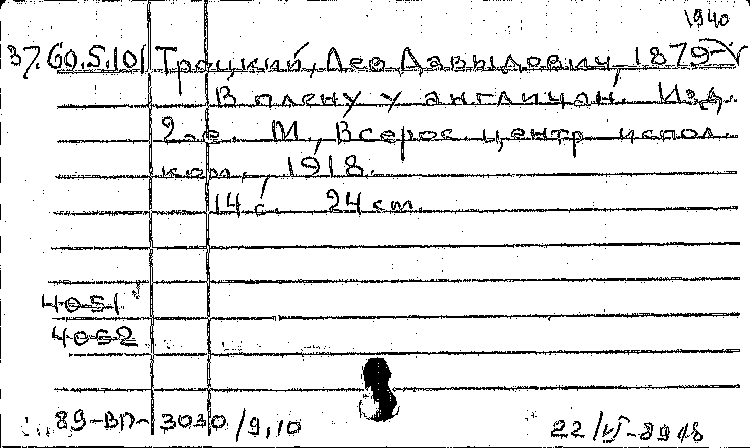 1940
37.60.5.101 Троцкий, Лев Давыдович, 1879-
В плену у англичан. Изд.
2-е. М., Всерос. центр. испол.
ком., 1918.
14 с. 24 cm.
4051
4052
89-ВП-3030/9,10
22/